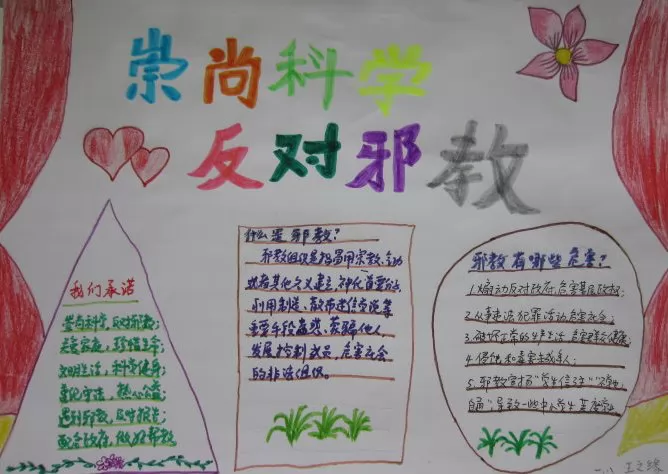 崇尚科学
反对邪教
我们承诺
崇尚科学,反对邪教;
关爱家庭,珍惜生命;
文明生活,科学健身;
遵纪守法,热心公益
遇到邪教,及时报告;
配合政府,做好帮教
什么是邪教?
邪教组织是指冒用宗教、气功
或者其他名义建立,神化首要分子,
利用制造、散布迷信邪说等
手段蛊惑、蒙骗他人,
发展控制成员,危害社会
的非法组织。
邪教有哪些危害?
1.煽动反对政府,危害基层政权;
2.从事违法犯罪活动危害社会;
3.破坏正常的生产生活
4.侵蚀和毒害未成年人;
5.邪教宣扬